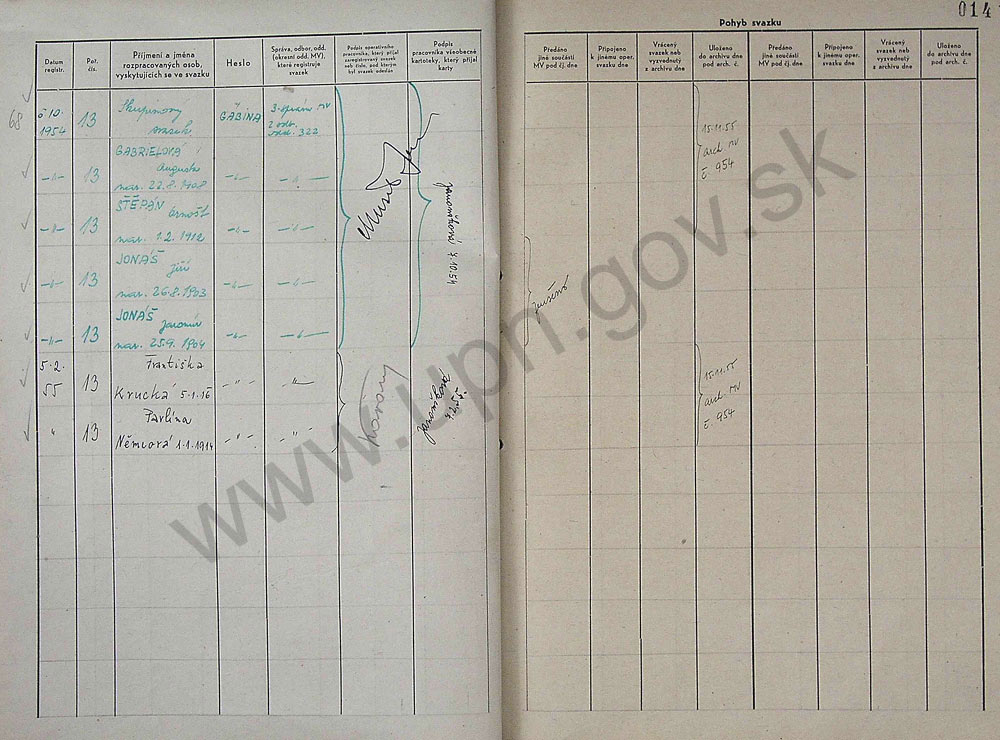 014
Pohyb svazku
Datum
registr.
Poř.
čís.
Příjmení a jména
rozpracovaných osob,
vyskytujících se ve svazku
Heslo
Správa, odbor, odd.
(okresní odd. MV),
které registruje
svazek
Podpis operativního
pracovníka, který přijal
zaregistrovaný svazek
neb číslo, pod kterým
byl svazek odeslán
Podpis
pracovníka všeobecné
kartotéky, který přijal
karty
Předáno
jiné součásti
MV pod čj. dne
Připojeno
k jinému oper.
svazku dne
Vrácený
svazek neb
vyzvednutý
z archivu dne
Uloženo
do archivu dne
pod arch. č.
Předáno
jiné součásti
MV pod čj. dne
Připojeno
k jinému oper.
svazku dne
Vrácený
svazek neb
vyzvednutý
z archivu dne
Uloženo
do archivu dne
pod arch. č.
68
6.10.
1954
13
Skupinový
svazek
GABINA
3. správa MV
2 odb.
odd. 322
-"- 13
GABRIELOVÁ
Augusta
nar. 22.8.1908
-"- -"-
-"- 13
ŠTĚPÁN
Arnošt
nar. 1.2.1912
-"- -"-
-"- 13
JONÁŠ
Jiří
nar. 26.8.1903
-"- -"-
-"- 13
JONÁŠ
Jaromír
nar. 25.9.1904
-"- -"-
7.10.54
15.11.55
arch MV
č. 954
zrušeno
5.2.
55
13
Františka
Krucká 5.1.16
-"- -"-
" 13
Pavlína
Němcová 1.1.1914
-"- -"-
15.11.55
arch MV
č. 954
www.upn.gov.sk